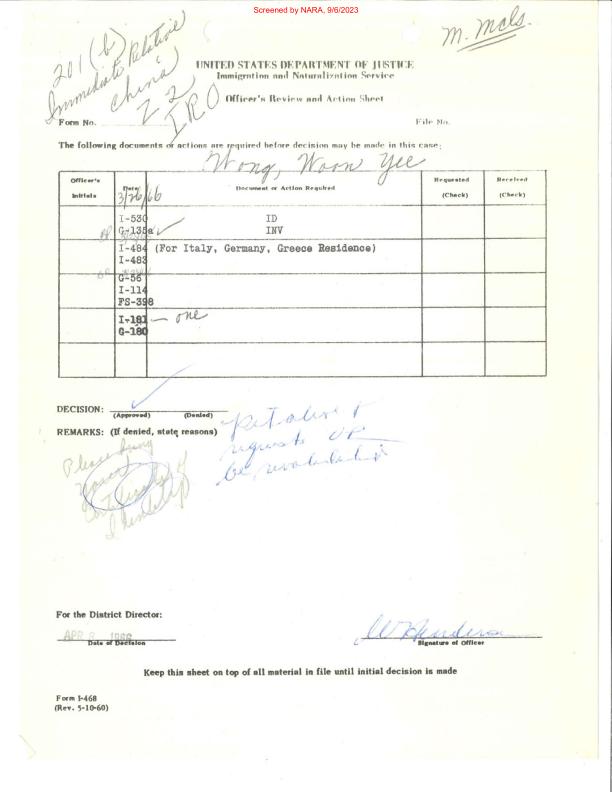 Screened by NARA, 9/6/2023
M. Mcls.
201(b)
Immediate Relative
China
Z 2
IRO
UNITED STATES DEPARTMENT OF JUSTICE
Immigration and Naturalization Service
Officer's Review and Action Sheet
Form No.
File No.
The following documents or actions are required before decision may be made in this case:
Wong, Woon Yee
Officer's Initials
Date
Document or Action Required
Requested (Check)
Received (Check)
3/26/66
I-530 ID
G-135a INV
I-484 (For Italy, Germany, Greece Residence)
I-483
G-56
I-114
FS-398
I-181 — one
G-180
DECISION:
(Approved) (Denied)
REMARKS: (If denied, state reasons)
requests
be
Please bring
Identity
For the District Director:
APR 1966
Date of Decision
Signature of Officer
Keep this sheet on top of all material in file until initial decision is made
Form I-468
(Rev. 5-10-60)